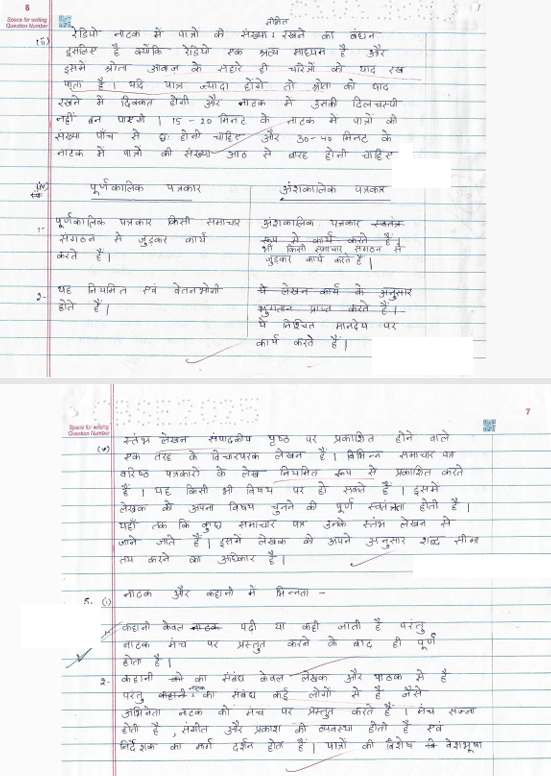 6
Space for writing
Question Number
सीमित
(ii) रेडियो नाटक में पात्रों की संख्या : रखने का बंधन
इसलिए है क्योंकि रेडियो एक श्रव्य माध्यम है और
इसमें श्रोता आवाज के सहारे ही चरित्रों को याद रख
पाता है। यदि पात्र ज्यादा होंगे तो श्रोता को याद
रखने में दिक्कत होगी और नाटक में उनकी दिलचस्पी
नहीं बन पाएगी। 15-20 मिनट के नाटक में पात्रों की
संख्या पाँच से छः होनी चाहिए और 30-40 मिनट के
नाटक में पात्रों की संख्या आठ से बारह होनी चाहिए
(iv) पूर्णकालिक पत्रकार अंशकालिक पत्रकार
1- पूर्णकालिक पत्रकार किसी समाचार अंशकालिक पत्रकार स्वतंत्र
संगठन से जुड़कर कार्य रूप से कार्य करते हैं।
भी किसी समाचार संगठन से
करते हैं। जुड़कर कार्य करते हैं।
2- यह नियमित एवं वेतनभोगी ये लेखन कार्य के अनुसार
होते हैं। भुगतान प्राप्त करते हैं।
ये निश्चित मानदेय पर
कार्य करते हैं।
7
Space for writing
Question Number
(v) स्तंभ लेखन संपादकीय पृष्ठ पर प्रकाशित होने वाले
एक तरह के विचारपरक लेखन हैं। विभिन्न समाचार पत्र
वरिष्ठ पत्रकारों के लेख नियमित रूप से प्रकाशित करते
हैं। यह किसी भी विषय पर हो सकते हैं। इसमें
लेखक को अपना विषय चुनने की पूर्ण स्वतंत्रता होती है।
यहाँ तक कि कुछ समाचार पत्र उनके स्तंभ लेखन से
जाने जाते हैं। इसमें लेखक को अपने अनुसार शब्द सीमा
तय करने का अधिकार है।
5. (i) नाटक और कहानी में भिन्नता -
कहानी केवल नाटक पढ़ी या कही जाती है परंतु
नाटक मंच पर प्रस्तुत करने के बाद ही पूर्ण
होता है।
2- कहानी का संबंध केवल लेखक और पाठक से है
परंतु कहानी नाटक का संबंध कई लोगों से है जैसे
अभिनेता नाटक को मंच पर प्रस्तुत करते हैं। मंच सज्जा
होती है, संगीत और प्रकाश की व्यवस्था होती है एवं
निर्देशक का मार्ग दर्शन होता है। पात्रों की विशेष वेशभूषा